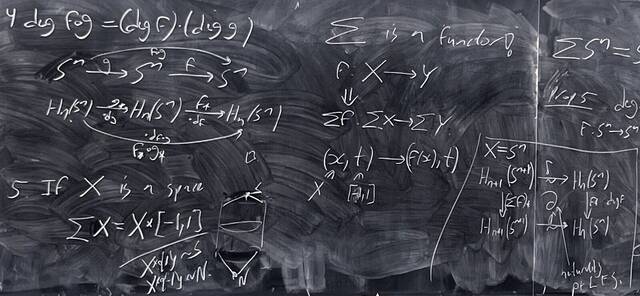 4 deg fog = (deg f)·(deg g)
fog
Sⁿ →g Sⁿ →f Sⁿ
Hₙ(Sⁿ) → Hₙ(Sⁿ) →f* Hₙ(Sⁿ)
·dg ·df
·dfog
f*og*
□
5. If X is a space
ΣX = X×[-1,1]
X×{1}~S
X×{-1}~N
S
N
Σ is a functor!
f: X → Y
⇓
Σf: ΣX → ΣY
(x, t) → (f(x), t)
X [-1,1]
ΣSⁿ =
deg
f: Sⁿ → Sⁿ
X = Sⁿ
Hₙ₊₁(Sⁿ⁺¹) → Hₙ(Sⁿ)
↓(Σf)* ∂ ↓f*
Hₙ₊₁(Sⁿ⁺¹) → Hₙ(Sⁿ)
naturality
of L.E.S.